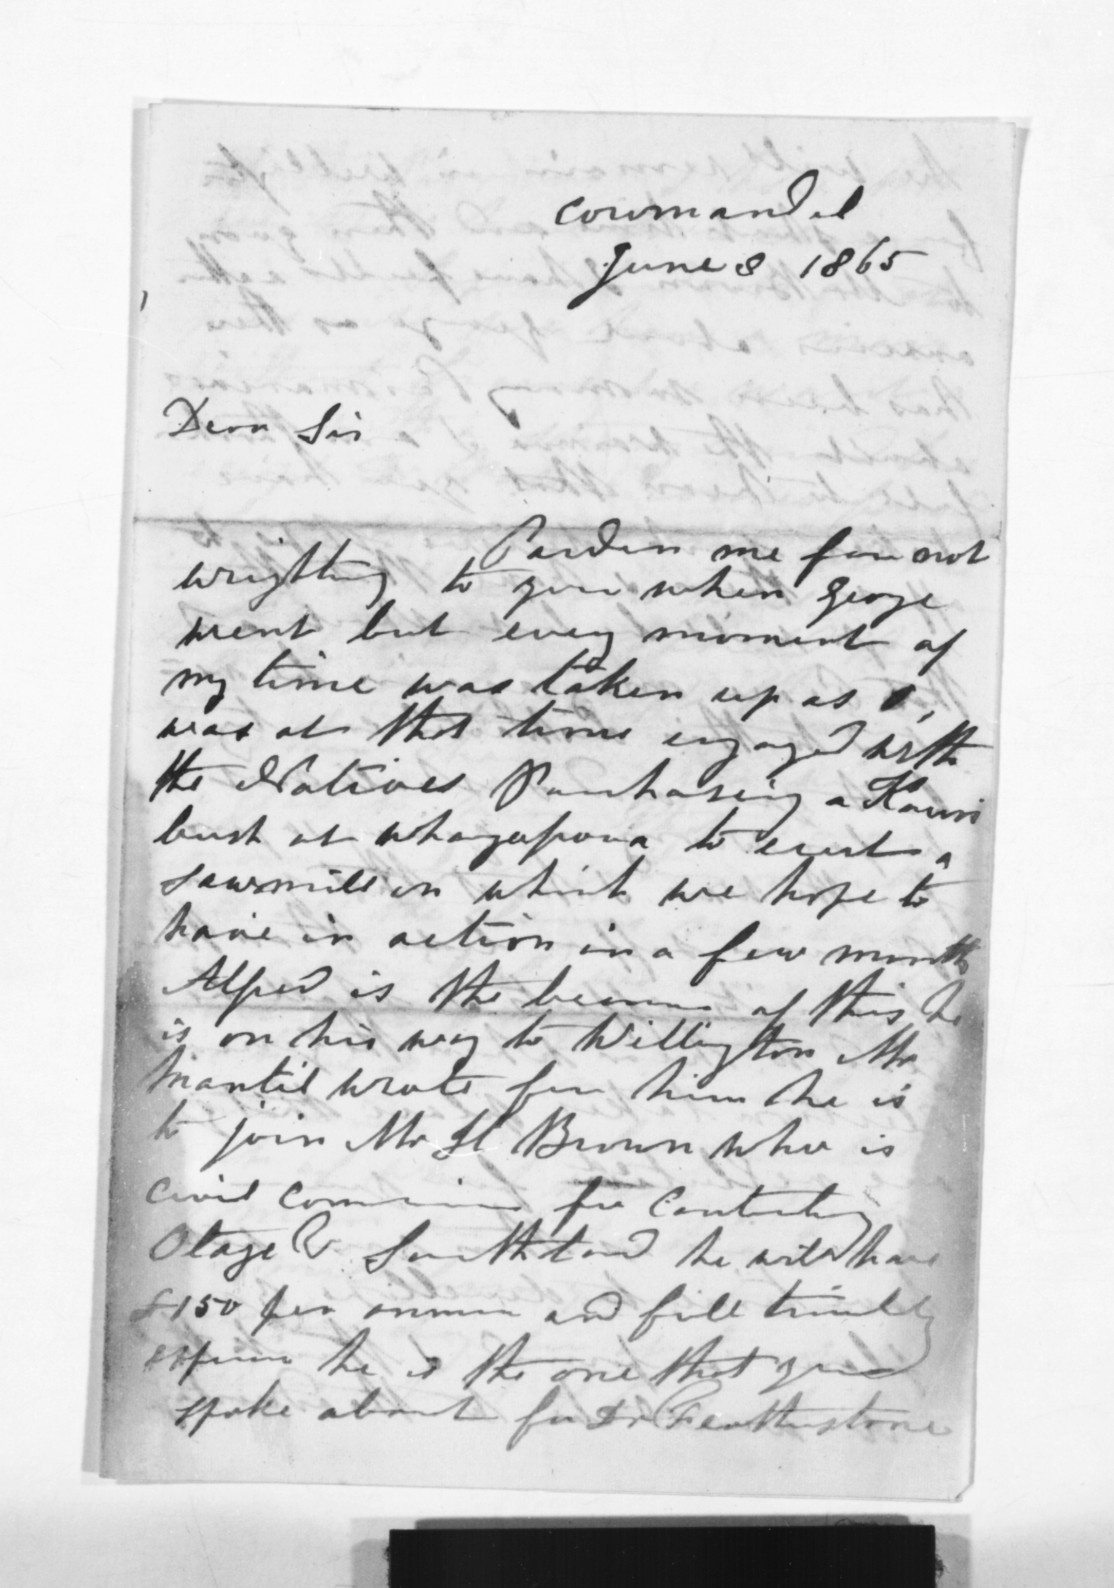 Cowmandel
June 8 1865
Dear Sir
Pardon me for not
wrighting to you when George
went but every moment of
my time was taken up as I,
was at that time engaged with
the Natives Purchasing a Kauri
bush at whangapoua to erect a
sawmill on which we hope to
have in action in a few months
Alfred is the bearer of this he
is on his way to Wellington Mr
Mantil wrote for him he is
to join Mr H Brown who is
civil for Canterbury
Otago & Southland he will have
£150 per annum and full travling
he is the one that you
spoke about for Dr Featherstone